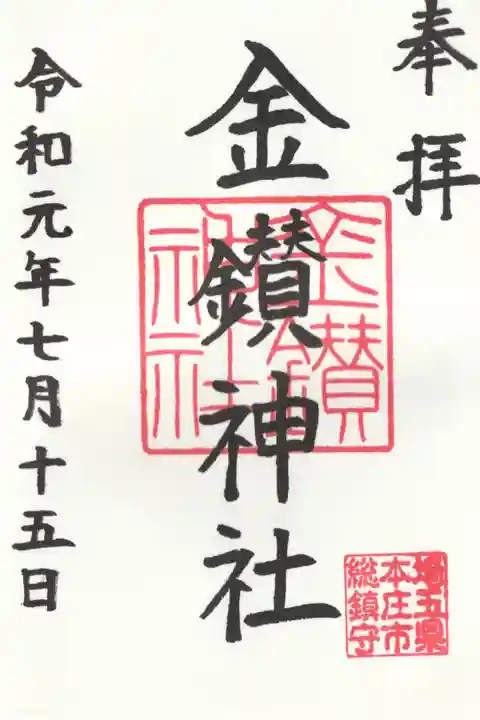 奉拝
金鑚神社
令和元年七月十五日
埼玉県
本庄市
総鎮守